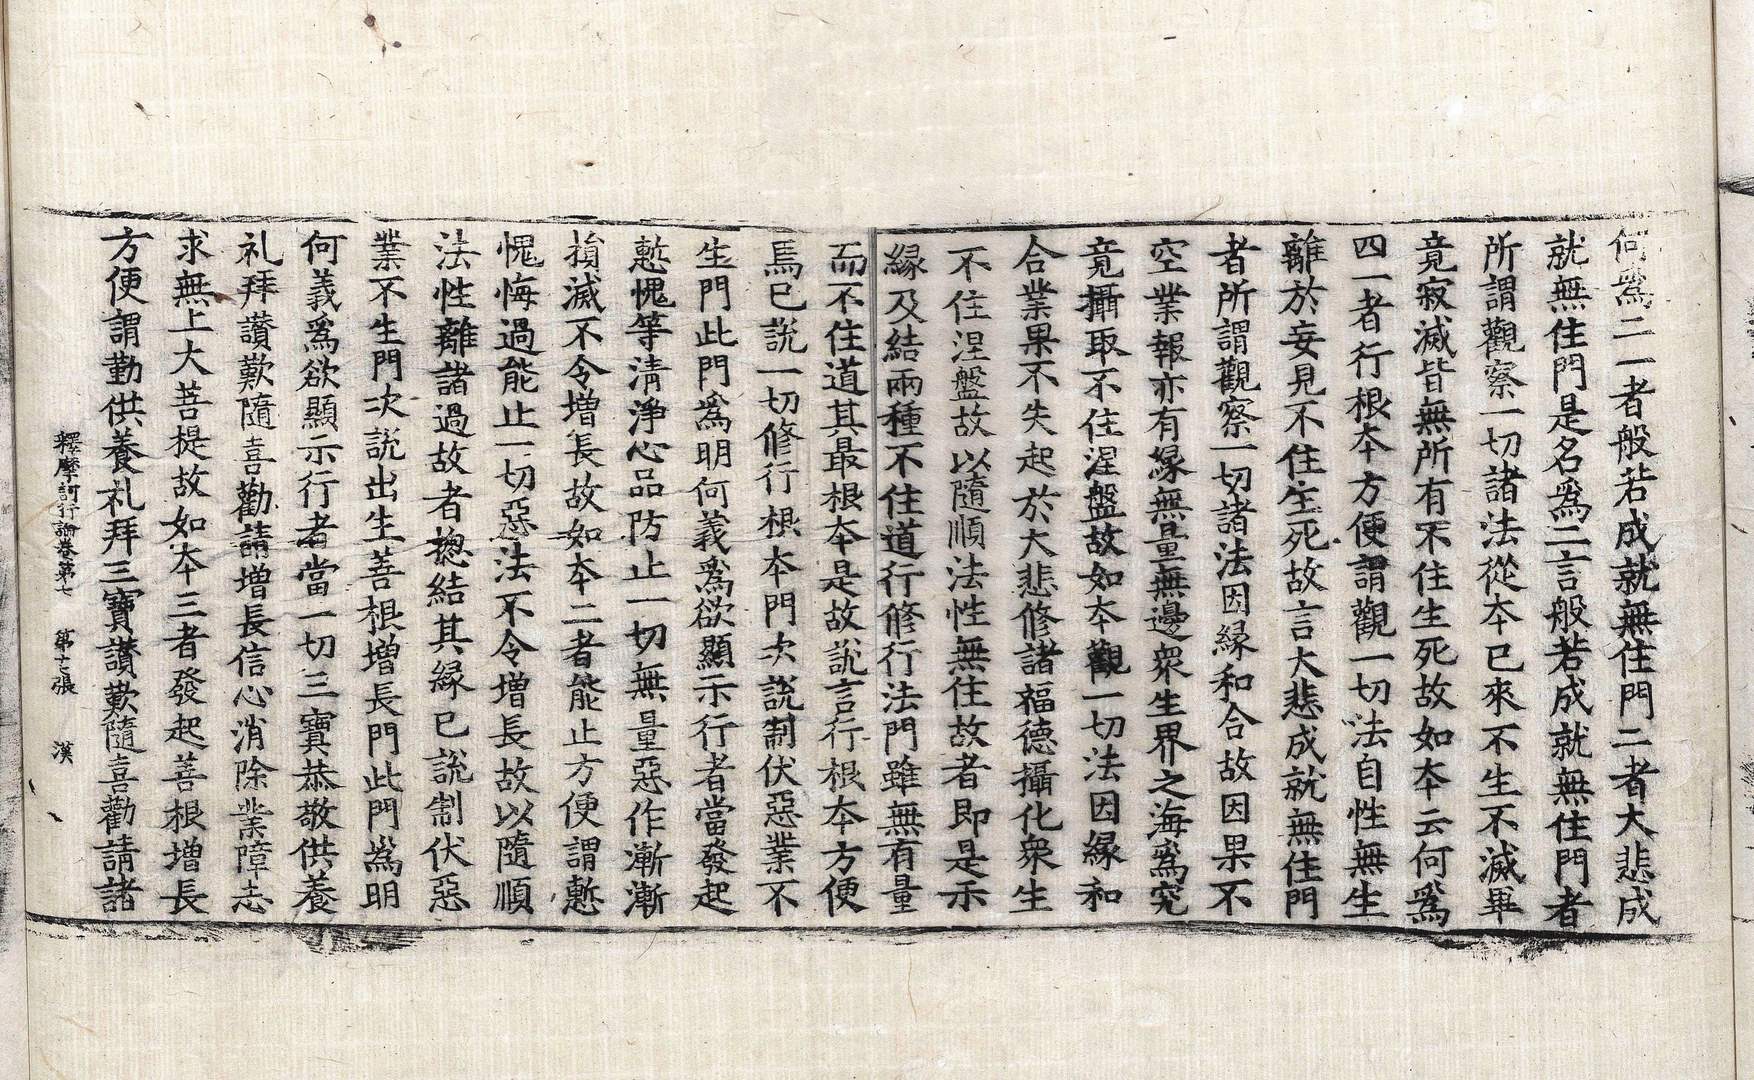 何爲二一者般若成就無住門二者大悲成
就無住門是名爲二言般若成就無住門者
所謂觀察一切諸法從本已來不生不滅畢
竟寂滅皆無所有不住生死故如本云何爲
四一者行根本方便謂觀一切法自性無生
離於妄見不住生死故言大悲成就無住門
者所謂觀察一切諸法因緣和合故因果不
空業報亦有緣無量無邊衆生界之海爲究
竟攝取不住涅盤故如本觀一切法因緣和
合業果不失起於大悲修諸福德攝化衆生
不住涅盤故以隨順法性無住故者即是示
緣及結兩種不住道行修行法門雖無有量
而不住道其最根本是故說言行根本方便
焉已說一切修行根本門次說制伏惡業不
生門此門爲明何義爲欲顯示行者當發起
慙愧等清淨心品防止一切無量惡作漸漸
損滅不令增長故如本二者能止方便謂慙
愧悔過能止一切惡法不令增長故以隨順
法性離諸過故者摠結其緣已說制伏惡
業不生門次說出生善根增長門此門爲明
何義爲欲顯示行者當一切三寶恭敬供養
礼拜讚歎隨喜勸請增長信心消除業障志
求無上大菩提故如本三者發起善根增長
方便謂勤供養礼拜三寶讚歎隨喜勸請諸
釋摩訶衍論卷第七　第十七張　漢